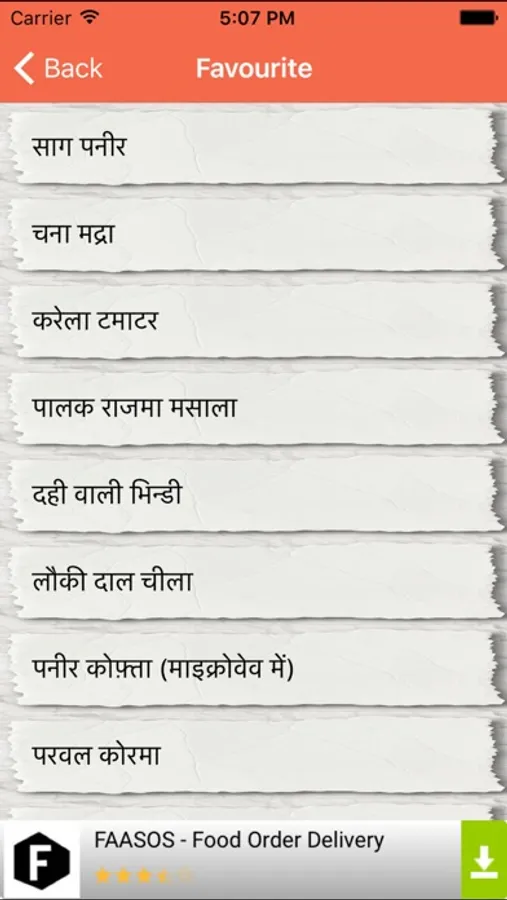 Carrier 5:07 PM
Back Favourite
साग पनीर
चना मद्रा
करेला टमाटर
पालक राजमा मसाला
दही वाली भिन्डी
लौकी दाल चीला
पनीर कोफ़्ता (माइक्रोवेव में)
परवल कोरमा
F
FAASOS - Food Order Delivery